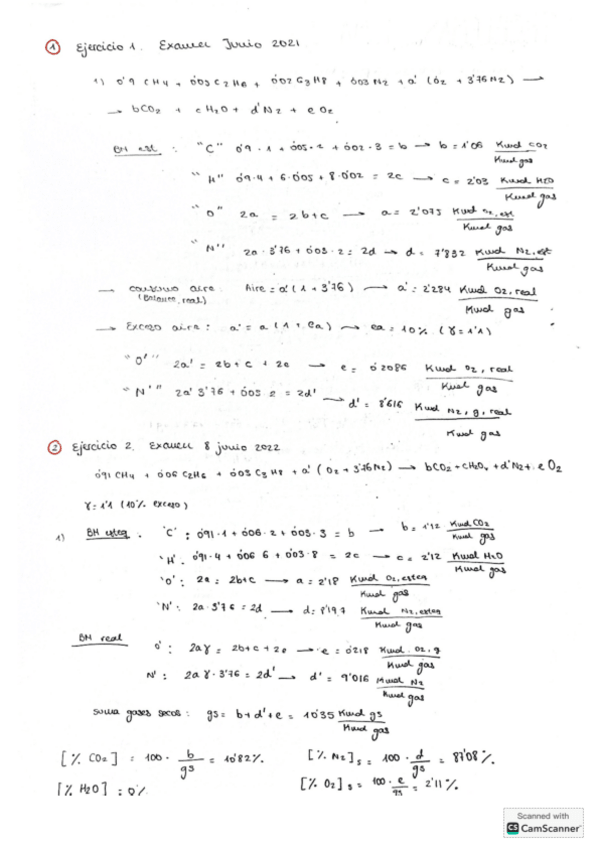 1 Ejercicio 1. Examen Junio 2021
1) 0'9 CH4 + 0'05 C2H6 + 0'02 C3H8 + 0'03 N2 + a' (O2 + 3'76 N2) →
→ bCO2 + cH2O + d'N2 + eO2
BM est : "C" 0'9 · 1 + 0'05 · 2 + 0'02 · 3 = b → b = 1'06 Kmol CO2 / Kmol gas
"H" 0'9·4 + 6·0'05 + 8·0'02 = 2c → c = 2'03 Kmol H2O / Kmol gas
"O" 2a = 2b+c → a = 2'075 Kmol O2,est / Kmol gas
"N" 2a · 3'76 + 0'03 · 2 = 2d → d = 7'832 Kmol N2,est / Kmol gas
→ consumo aire : Aire = a'(1 + 3'76) → a' = 2'284 Kmol O2, real / Kmol gas
(Balance, real)
→ Exceso aire : a' = a (1 + ea) → ea = 10% (γ = 1'1)
"O'" 2a' = 2b + c + 2e → e = 0'2086 Kmol O2, real / Kmol gas
"N'" 2a' 3'76 + 0'03 · 2 = 2d' → d' = 8'616 Kmol N2, g, real / Kmol gas
2 Ejercicio 2. Examen 8 junio 2022
0'91 CH4 + 0'06 C2H6 + 0'03 C3H8 + a' (O2 + 3'76 N2) → bCO2 + cH2O + d'N2 + eO2
γ = 1'1 (10% exceso)
1) BM esteq. 'C' : 0'91 · 1 + 0'06 · 2 + 0'03 · 3 = b → b = 1'12 Kmol CO2 / Kmol gas
'H'. 0'91 · 4 + 0'06 6 + 0'03 · 8 = 2c → c = 2'12 Kmol H2O / Kmol gas
'O' : 2a = 2b+c → a = 2'18 Kmol O2, esteq / Kmol gas
'N' : 2a · 3'76 = 2d → d = 8'197 Kmol N2, esteq / Kmol gas
BM real O' : 2aγ = 2b + c + 2e → e = 0'218 Kmol O2, g / Kmol gas
N' : 2a γ · 3'76 = 2d' → d' = 9'016 Kmol N2 / Kmol gas
suma gases secos : gs = b + d' + e = 10'35 Kmol gs / Kmol gas
[% CO2] = 100 · b/gs = 10'82%. [% N2]s = 100 · d/gs = 87'08%.
[% H2O] : 0% [% O2]s = 100 · e/gs = 2'11%.
Scanned with
CS CamScanner